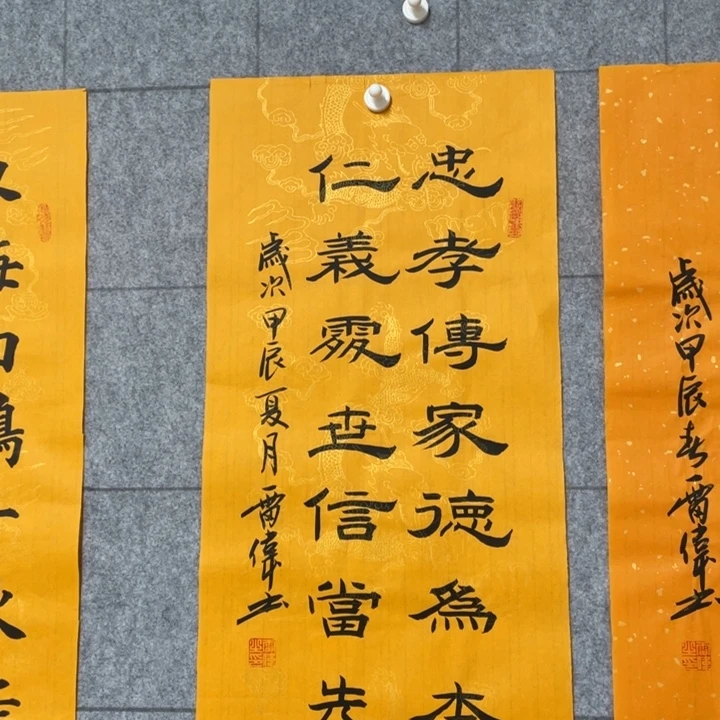 歲次甲辰春雷偉書
忠孝傳家德爲本
仁義處世信當先
歲次甲辰夏月雷偉書